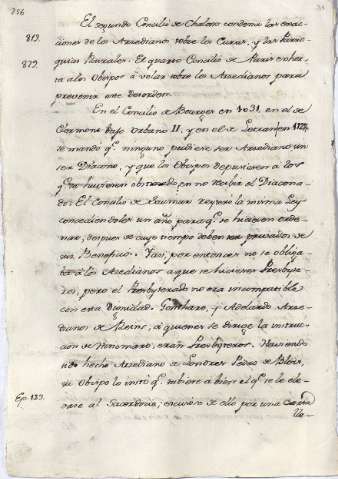 256
813.
El segundo Concilio de Chalons condena las exac-
ciones de los Arcedianos sobre los Curas, y las Parro-
quias Rurales. El quarto Concilio de Paris exhor-
829.
ta a los Obispos á velar sobre los Arcedianos para
prevenir este desorden.
En el Concilio de Bourges en 1031, en el de
Clermont bajo Urbano II, y en el de
se mandó q.e ninguno pudiese ser Arcediano sin
ser Diacono, y que los Obispos depusiesen a los
q.e se huviesen obstinado en no recibir el Diacona-
do. El Concilio de Saumur repite la misma Ley
concediendoles un año para q.e se hagan orde-
nar, despues de cuyo tiempo deben ser privados de
sus Beneficios. Y asi, por entonces no se obliga-
ba á los Arcedianos a que se hiciesen Presbyte-
ros, pero el Presbyterado no era incompatible
con esta Dignidad. Gonthario, y Adelardo Arce-
dianos de Rems, á quienes se dirige la instruc-
cion de Hincmaro, eran Presbyteros. Haviendo
sido hecho Arcediano de Londres Pedro de Blois,
su Obispo lo instó q.e tubiese a bien el q.e se le ele-
Ep. 123.
vase al Sacerdocio; escusose de ello por una Carta